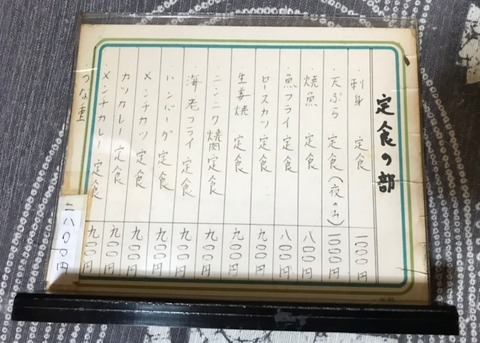 定食の部
・刺身 定食 一〇〇〇円
・天ぷら 定食(夜のみ) 一〇〇〇円
・焼魚 定食 八〇〇円
・魚フライ 定食 八〇〇円
・ロースカツ 定食 九〇〇円
・生姜焼 定食 九〇〇円
・ニンニク焼肉定食 九〇〇円
・海老フライ 定食 九〇〇円
・ハンバーグ 定食 九〇〇円
・メンチカツ 定食 九〇〇円
・カツカレー 定食 九〇〇円
・メンチカレー 定食 九〇〇円
うな重 二八〇〇円